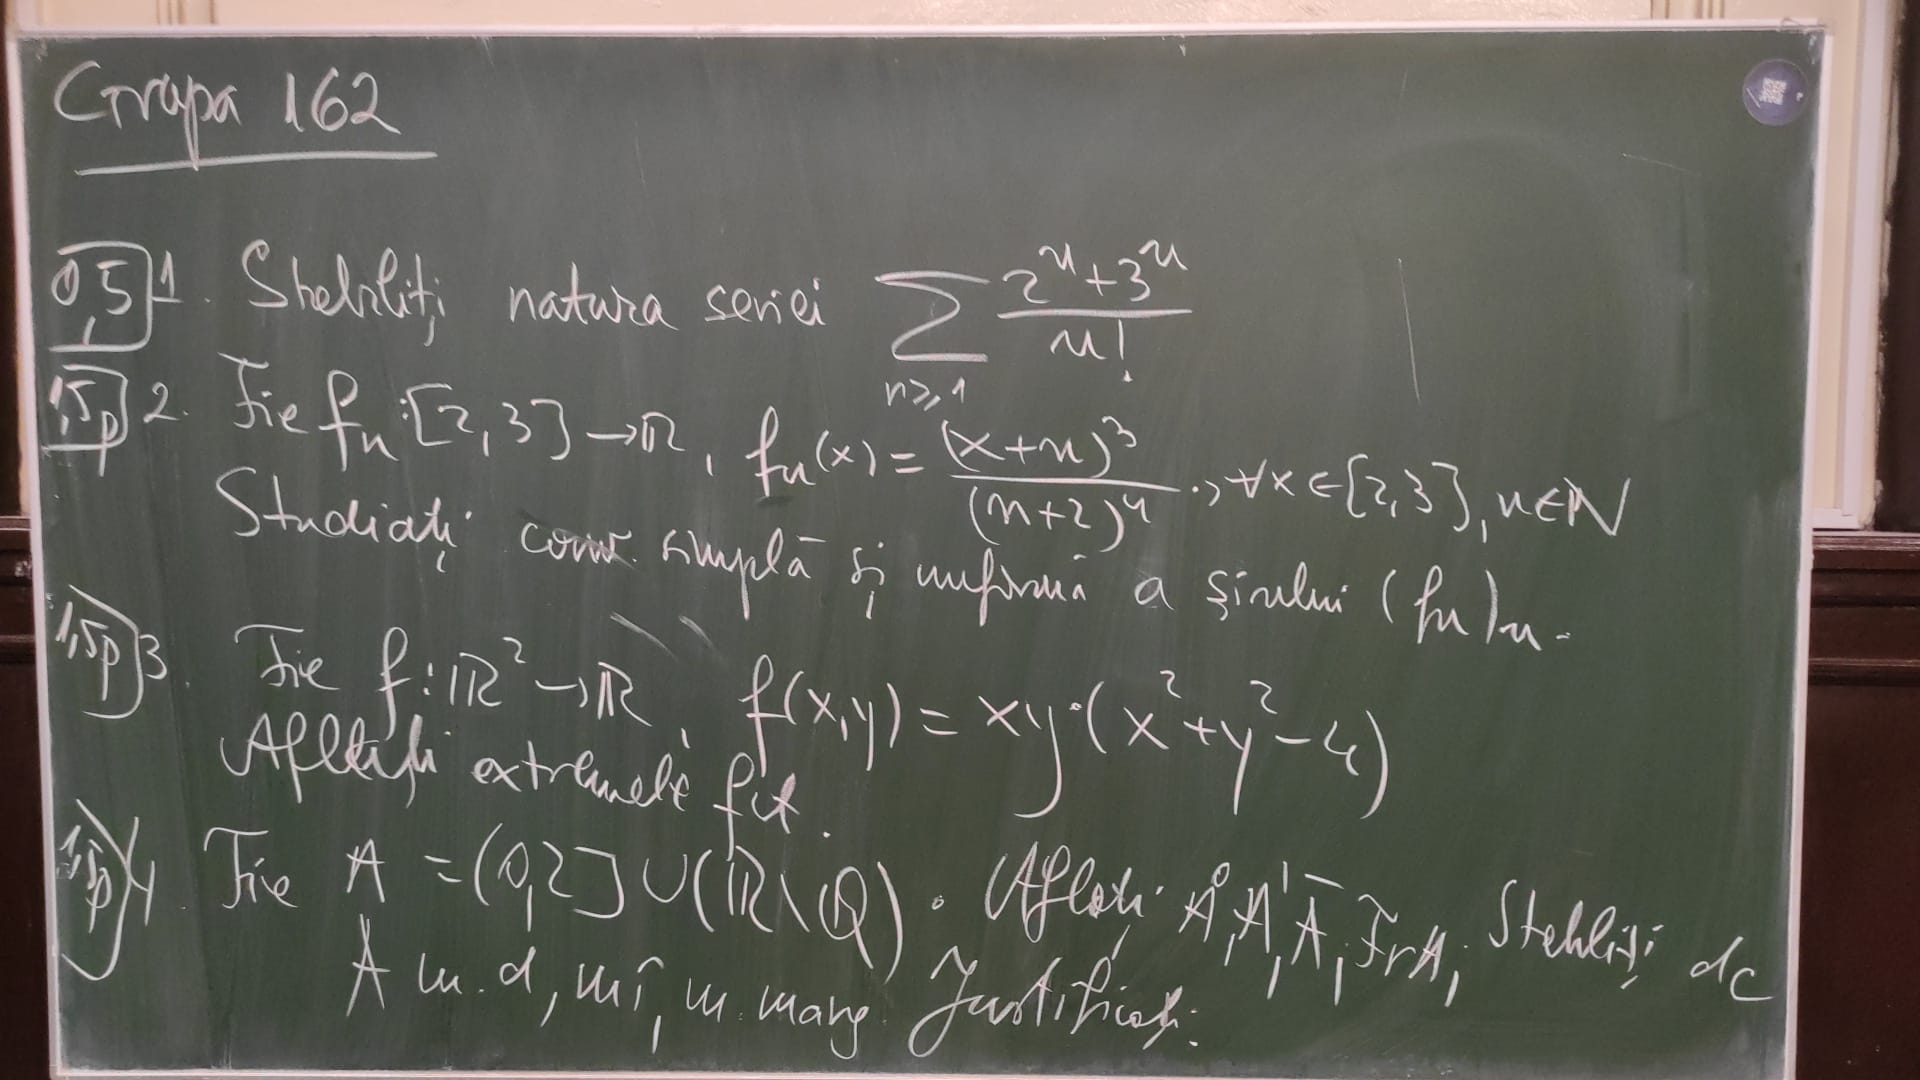 Grupa 162
0,5 1. Stabiliți natura seriei ∑_{n≥1} (2^n+3^n)/n!
1,5p 2. Fie f_n:[2,3]→ℝ, f_n(x) = (x+n)^3/(n+2)^4, ∀x∈[2,3], n∈ℕ
Studiați conv. simplă și uniformă a șirului (f_n)_n.
1,5p 3. Fie f:ℝ^2→ℝ, f(x,y) = xy·(x^2+y^2-4)
Aflați extremele fct.
1,5p 4. Fie A = (0,2]∪(ℝ\ℚ). Aflați Å, A', Ā, FrA, Stabiliți dc
A m.d, mî, m. marg. Justificați.